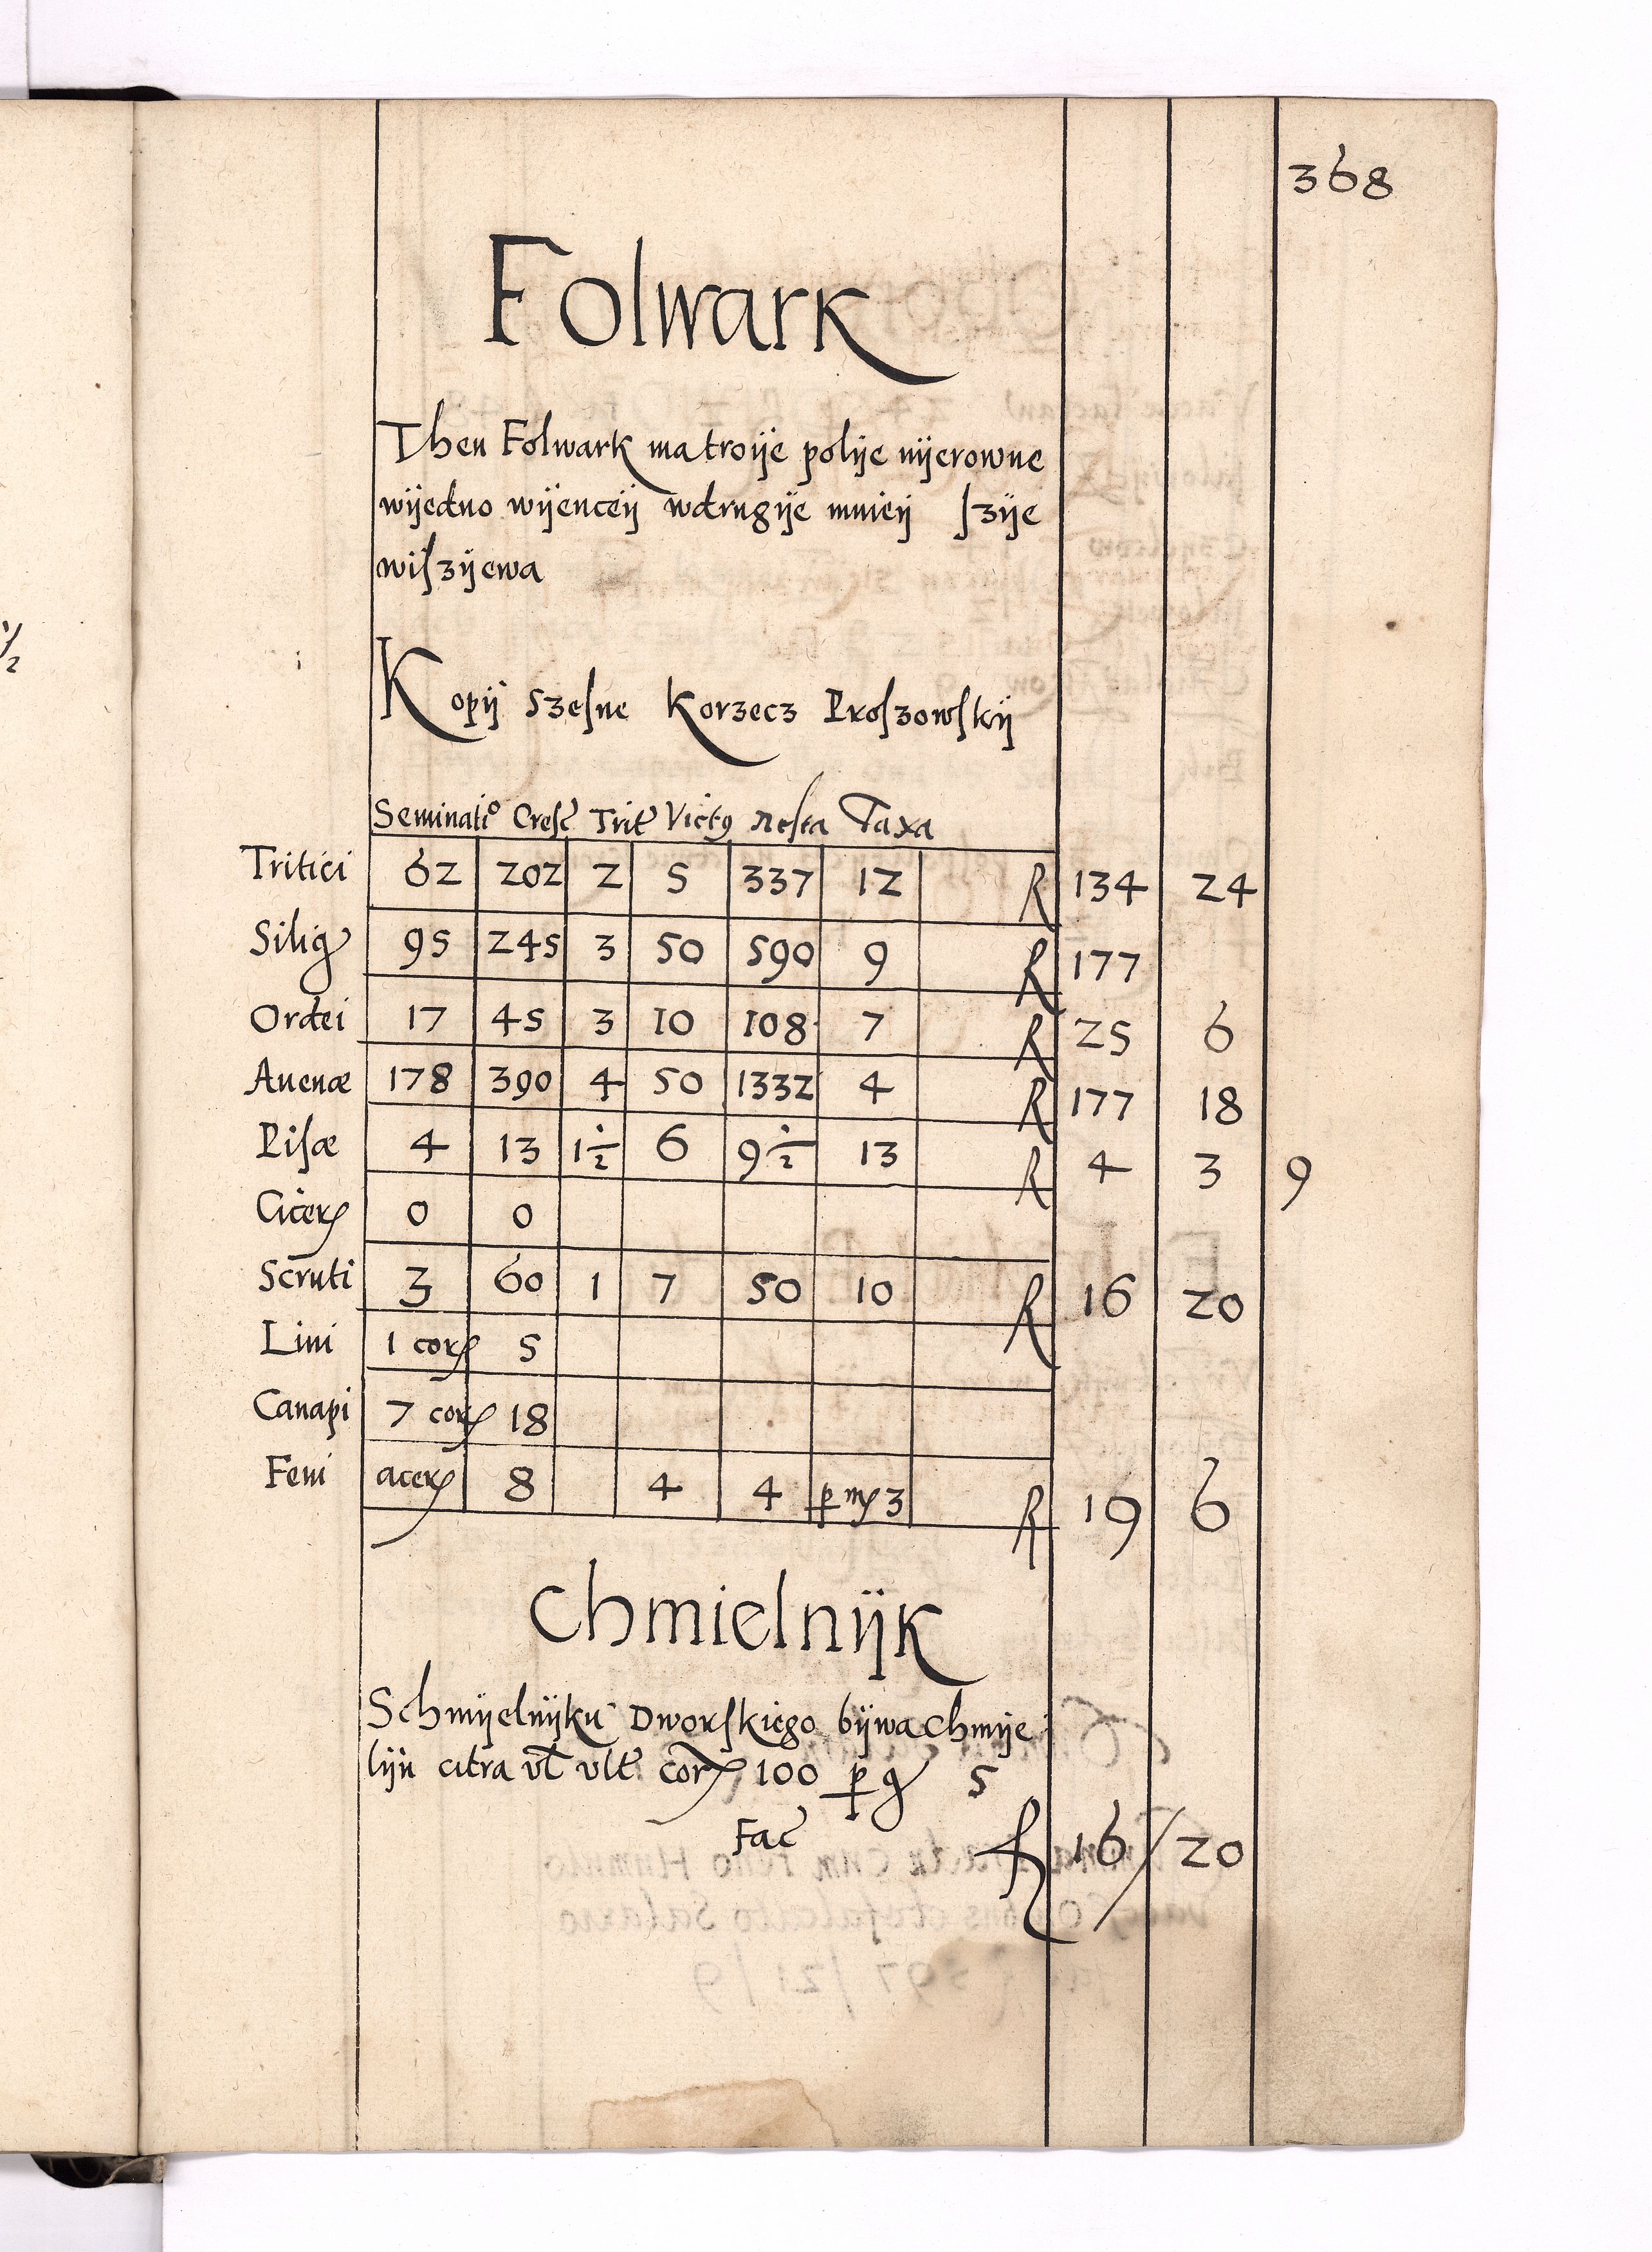 368
Folwark
Then Folwark ma troije polije nijerowne
wijedno wijenceij wdrugije mnieij szije
wiszijewa
Kopij szesne Korzecz Proszowskij
Seminatio Cresc Trit Victq Resta Taxa
Tritici 62 202 2 5 337 12 R 134 24
Silig 95 245 3 50 590 9 R 177
Ordei 17 45 3 10 108 7 R 25 6
Auenæ 178 390 4 50 1332 4 R 177 18
Pisæ 4 13 1½ 6 9½ 13 R 4 3 9
Cicer 0 0
Scruti 3 60 1 7 50 10 R 16 20
Lini 1 cor 5
Canapi 7 cor 18
Feni acer 8 4 4 p m 3 R 19 6
Chmielnijk
Schmijelnijku Dworskiego bijwa Chmije
liju citra vl vlt cor 100 p g 5
Fac R 16/20